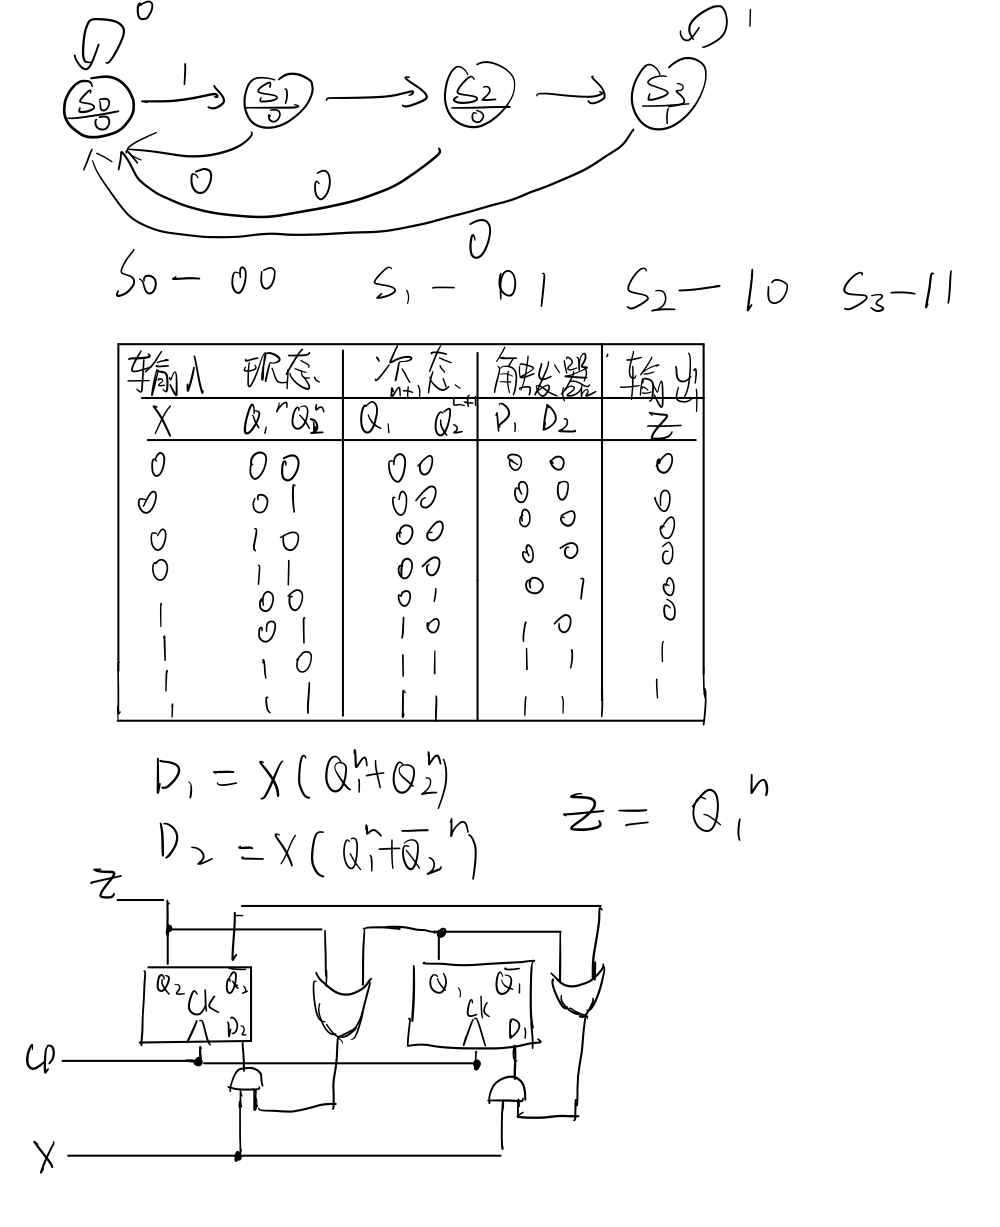 0 1
1
S0 S1 S2 S3
0 0 0 1
0 0
0
S0 - 00 S1 - 01 S2 - 10 S3 - 11
输入 现态 次态 触发器 输出
X Q1ⁿ Q2ⁿ Q1ⁿ⁺¹ Q2ⁿ⁺¹ D1 D2 Z
0 0 0 0 0 0 0 0
0 0 1 0 0 0 0 0
0 1 0 0 0 0 0 0
0 1 1 0 0 0 0 0
1 0 0 0 1 0 1 0
1 0 1 1 0 1 0 0
1 1 0 1 1 1 1 1
1 1 1 1 1 1 1 1
D1 = X(Q1ⁿ+Q2ⁿ)
Z = Q1ⁿ
D2 = X(Q1ⁿ+Q̅2ⁿ)
Z
Q2 Q̅2 Q1 Q̅1
CK CK
D2 D1
CP
X